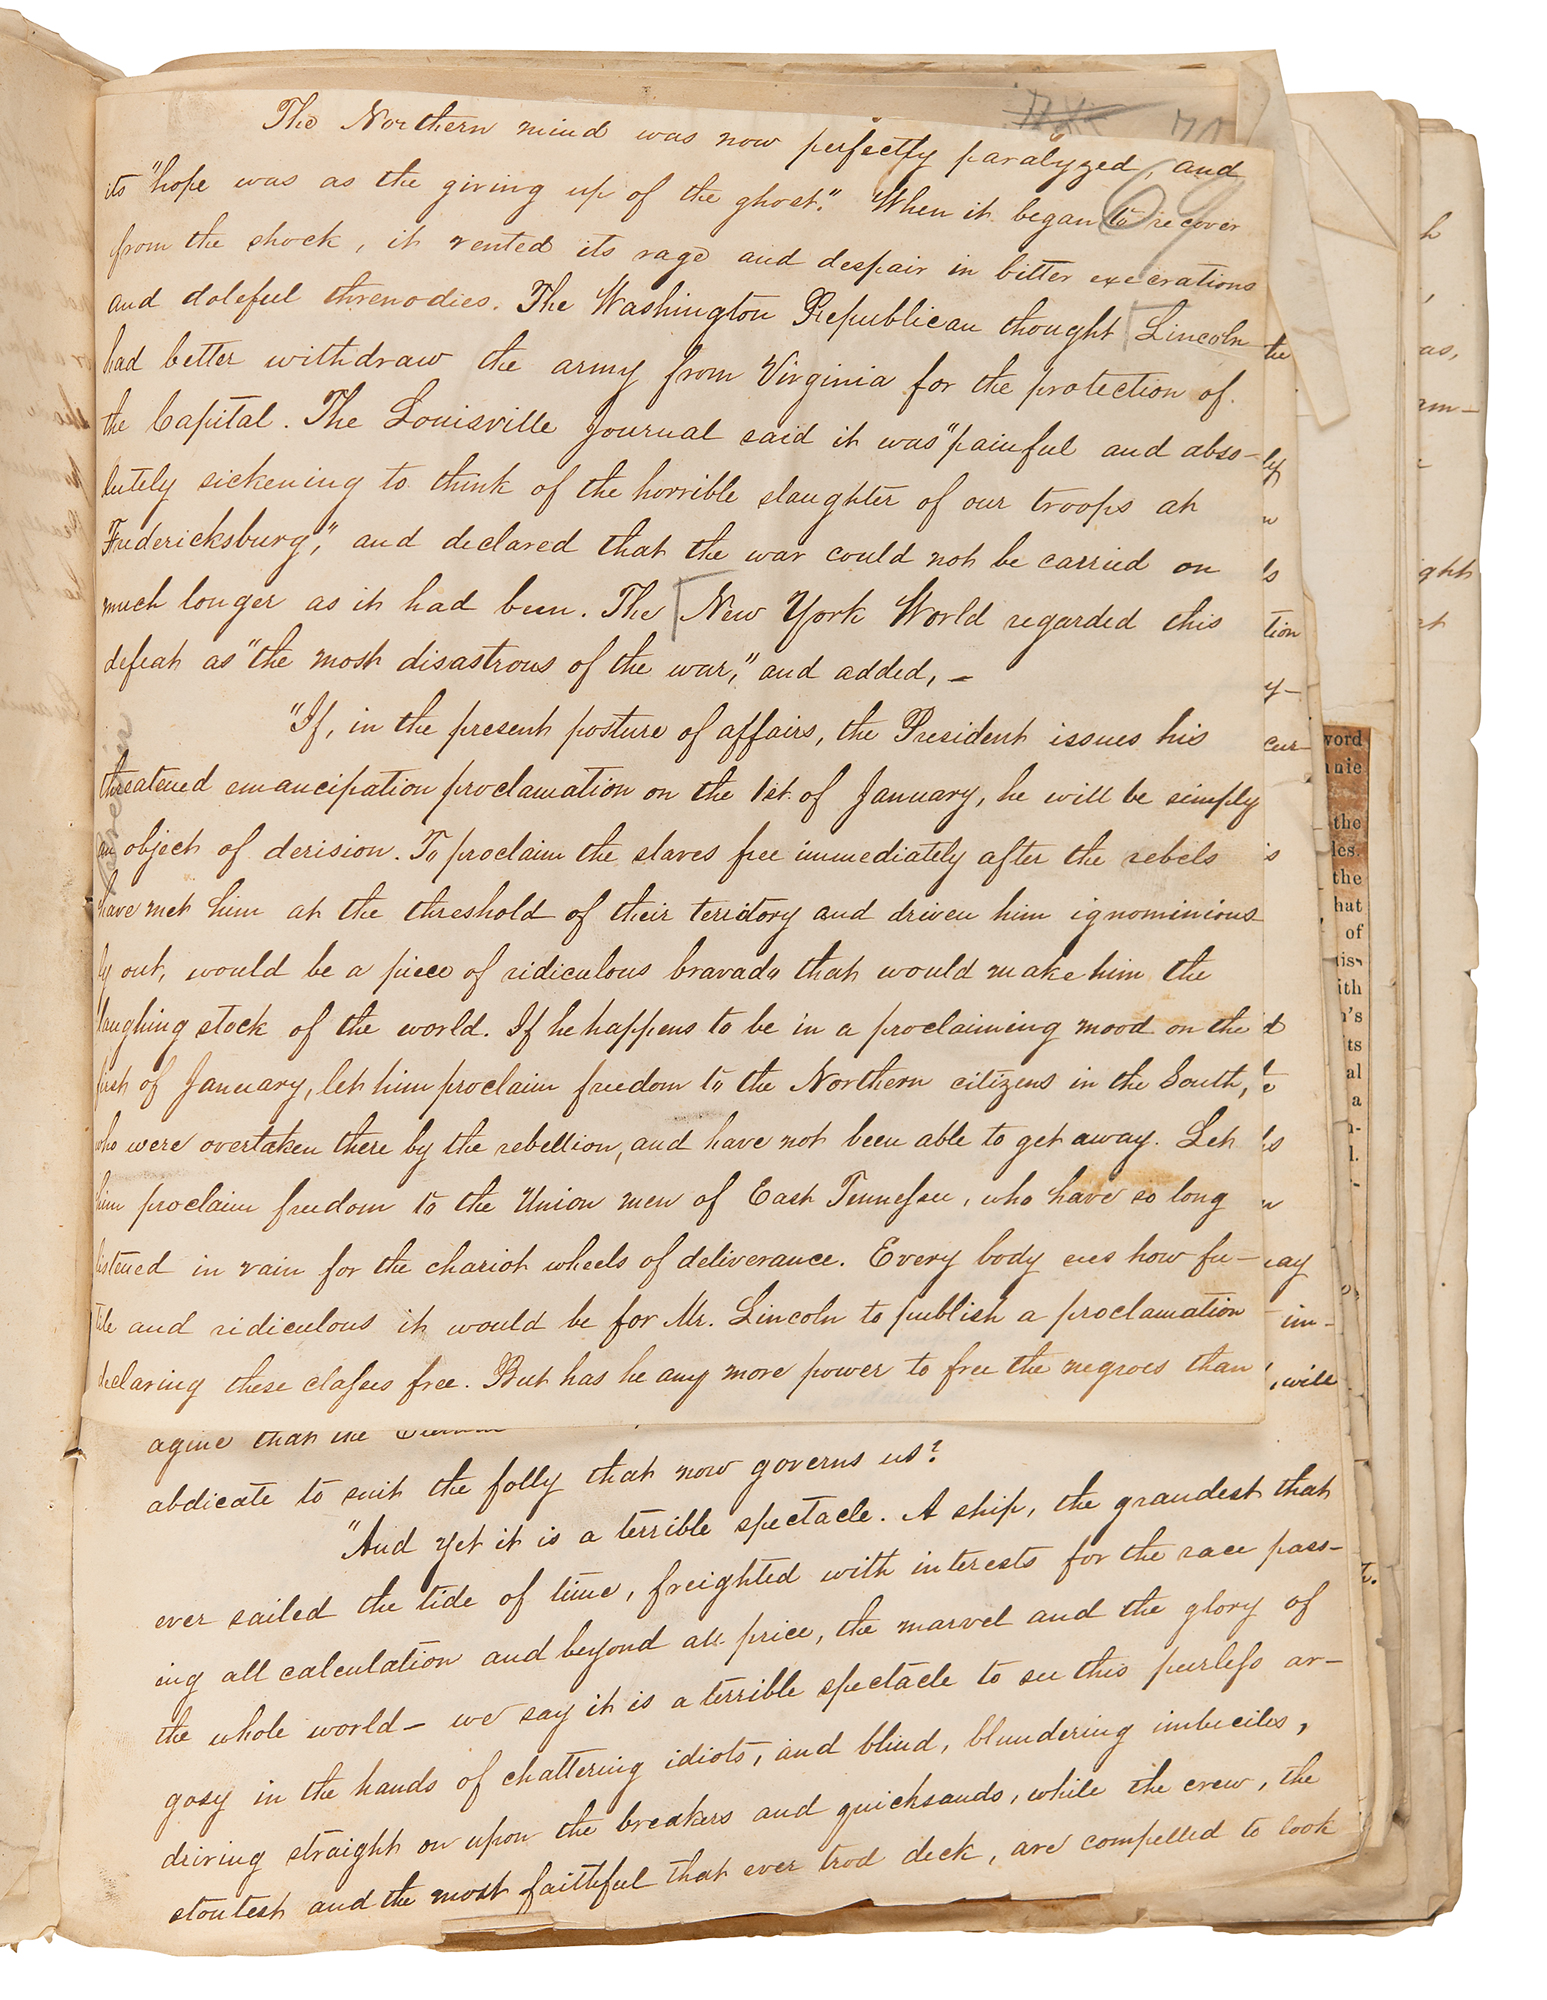 The Northern mind was now perfectly paralyzed, and
its "hope was as the giving up of the ghost." When it began to recover
from the shock, it vented its rage and despair in bitter execrations
and doleful threnodies. The Washington Republican thought Lincoln
had better withdraw the army from Virginia for the protection of
the Capital. The Louisville Journal said it was "painful and abso-
lutely sickening to think of the horrible slaughter of our troops at
Fredericksburg," and declared that the war could not be carried on
much longer as it had been. The New York World regarded this
defeat as "the most disastrous of the war," and added, –
"If, in the present posture of affairs, the President issues his
threatened emancipation proclamation on the 1st. of January, he will be simply
an object of derision. To proclaim the slaves free immediately after the rebels
have met him at the threshold of their territory and driven him ignominious
ly out, would be a piece of ridiculous bravado that would make him the
laughing stock of the world. If he happens to be in a proclaiming mood on the
first of January, let him proclaim freedom to the Northern citizens in the South,
who were overtaken there by the rebellion, and have not been able to get away. Let
him proclaim freedom to the Union men of East Tennessee, who have so long
listened in vain for the chariot wheels of deliverance. Every body sees how fu-
tile and ridiculous it would be for Mr. Lincoln to publish a proclamation
declaring these classes free. But has he any more power to free the negroes than
agine that the
abdicate to suit the folly that now governs us?
"And yet it is a terrible spectacle. A ship, the grandest that
ever sailed the tide of time, freighted with interests for the race pass-
ing all calculation and beyond all price, the marvel and the glory of
the whole world – we say it is a terrible spectacle to see this peerless ar-
gosy in the hands of chattering idiots, and blind, blundering imbeciles,
driving straight on upon the breakers and quicksands, while the crew, the
stoutest and the most faithful that ever trod deck, are compelled to look
the
ly
tion
cur-
im-
will
h
as,
am-
ight
word
nie
the
les.
the
hat
of
tis-
ith
n's
its
al
a